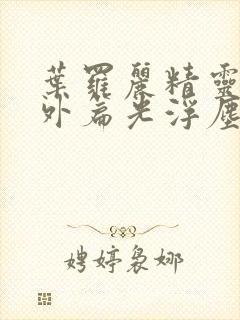 葉羅麗精靈
外扁光浮塵
娉婷裊娜